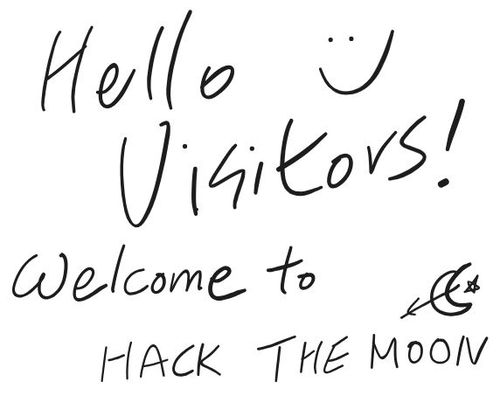 Hello
Visitors!
Welcome to
HACK THE MOON